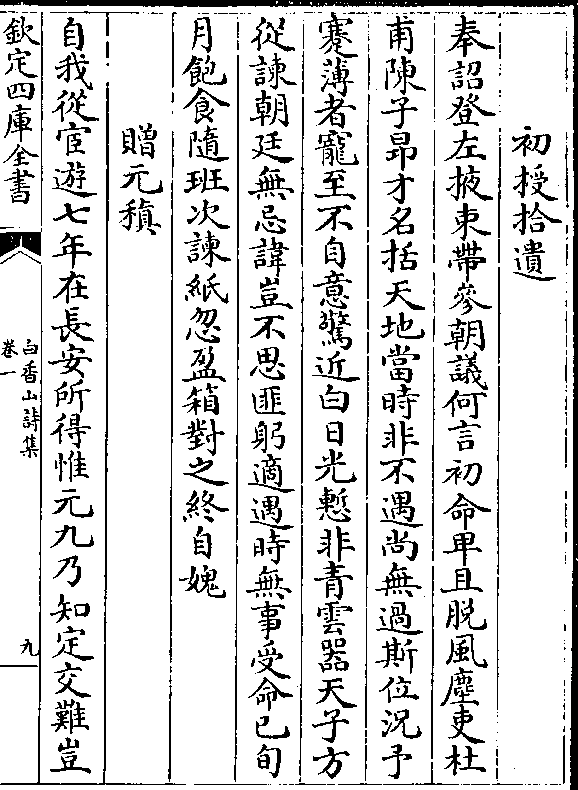 初授拾遺
奉詔登左掖束帶參朝議何言初命卑且脱風塵吏杜
甫陳子昂才名括天地當時非不遇尚無過斯位況予
蹇薄者寵至不自意驚近白日光慙非青雲器天子方
從諫朝廷無忌諱豈不思匪躬適遇時無事受命已旬
月飽食隨班次諫紙忽盈箱對之終自媿
贈元稹
自我從宦遊七年在長安所得惟元九乃知定交難豈
欽定四庫全書
白香山詩集
卷一
九